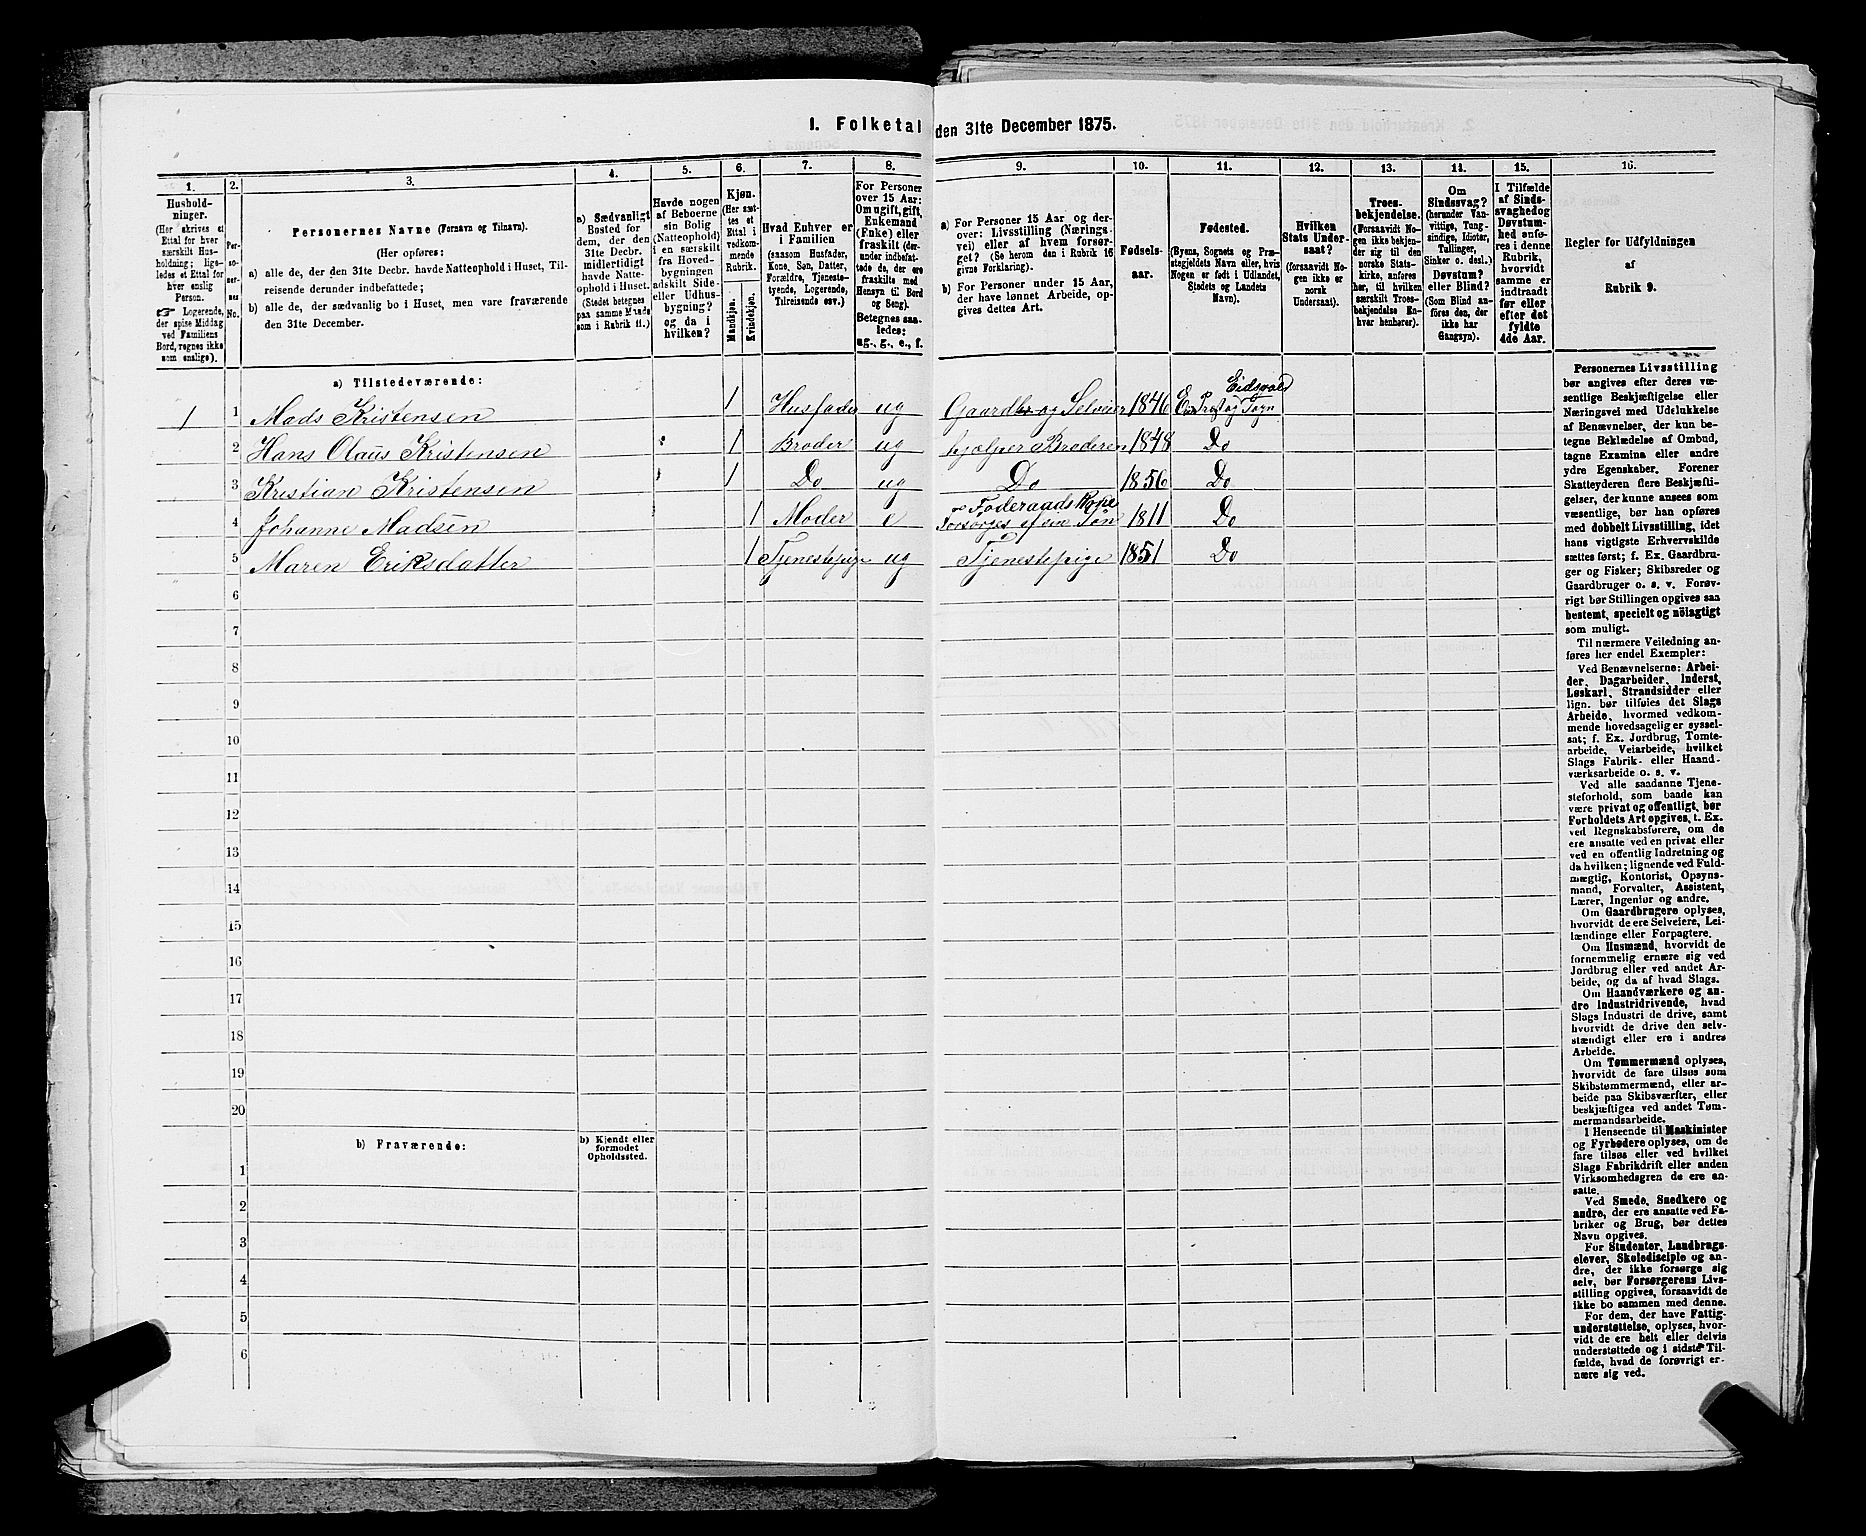 1. Folketal den 31te December 1875.
1.
Hushold-
ninger.
(Her skrives et
Ettal for hver
særskilt Hus-
holdning; lige-
ledes et Ettal for
hver enslig
Person.
☞ Logerende,
der spise Middag
ved Familiens
Bord, regnes ikke
som enslige).
2.
Per-
so-
ner-
nes
No.
3.
Personernes Navne (Fornavn og Tilnavn).
(Her opføres:
a) alle de, der den 31te Decbr. havde Natteophold i Huset, Til-
reisende derunder indbefattede;
b) alle de, der sædvanlig bo i Huset, men vare fraværende
den 31te December.
4.
a) Sædvanligt
Bosted for
dem, der den
31te Decbr.
midlertidigt
havde Natte-
ophold i Huset.
(Stedet betegnes
paa samme Maade
som i Rubrik 11.)
5.
Havde nogen
af Beboerne
sin Bolig
(Natteophold)
i en særskilt
fra Hoved-
bygningen
adskilt Side-
eller Udhus-
bygning?
og da i
hvilken?
6.
Kjøn.
(Her sæt-
tes et
Ettal i
vedkom-
mende
Rubrik.
Mandkjøn.
Kvindekjøn.
7.
Hvad Enhver er
i Familien
(saasom Husfader,
Kone, Søn, Datter,
Forældre, Tjeneste-
tyende, Logerende,
Tilreisende osv.)
8.
For Personer
over 15 Aar:
Om ugift, gift,
Enkemand
(Enke) eller
fraskilt (der-
under indbefat-
tede de, der ere
fraskilte med
Hensyn til Bord
og Seng).
Betegnes saa-
ledes:
ug., g., e., f.
9.
a) For Personer 15 Aar og der-
over: Livsstilling (Nærings-
vei) eller af hvem forsør-
get? (Se herom den i Rubrik 16
givne Forklaring).
b) For Personer under 15 Aar,
der have lønnet Arbeide, op-
gives dettes Art.
10.
Fødsels-
aar.
11.
Fødested.
(Byens, Sognets og Præ-
stegjeldets Navn eller, hvis
Nogen er født i Udlandet,
Stedets og Landets
Navn).
12.
Hvilken
Stats Under-
saat?
(forsaavidt No-
gen ikke er
norsk
Undersaat).
13.
Troes-
bekjendelse.
(Forsaavidt Nogen
ikke bekjen-
der sig til den
norske Stats-
kirke, anføres
her, til hvilken
særskilt Troes-
bekjendelse En-
hver henhører).
14.
Om
Sindssvag?
(herunder Van-
vittige, Tung-
sindige, Idioter,
Tullinger,
Sinker o. desl.)
Døvstum?
eller Blind?
(Som Blind an-
føres den, der
ikke har
Gangsyn).
15.
I Tilfælde
af Sinds-
svaghed og
Døvstum-
hed anfø-
res i denne
Rubrik,
hvorvidt
samme er
indtraadt
før eller
efter det
fyldte
4de Aar.
16.
Regler for Udfyldningen
af
Rubrik 9.
a) Tilstedeværende:
1 1 Mads Kristensen 1 Husfader ug Gaardbr og Selveier 1846 Eidsvold Præst og Sogn
2 Hans Olaus Kristensen 1 Broder ug hjælper Broderen 1848 Do
3 Kristian Kristensen 1 Do ug Do 1856 Do
4 Johanne Madsen 1 Moder e Føderaads Kone Forsørges af sin Søn 1811 Do
5 Maren Eriksdatter 1 Tjenestepige ug Tjenestepige 1851 Do
6
7
8
9
10
11
12
13
14
15
16
17
18
19
20
b) Fraværende:
b) Kjendt eller
formodet
Opholdssted.
1
2
3
4
5
6
Personernes Livsstilling
bør angives efter deres væ-
sentlige Beskjæftigelse eller
Næringsvei med Udelukkelse
af Benævnelser, der kun be-
tegne Beklædelse af Ombud,
tagne Examina eller andre
ydre Egenskaber. Forener
Skatteyderen flere Beskjæfti-
gelser, der kunne ansees som
væsentlige, bør han opføres
med dobbelt Livsstilling, idet
hans vigtigste Erhvervskilde
sættes først; f. Ex. Gaardbru-
ger og Fisker; Skibsreder og
Gaardbruger o. s. v. Forøv-
rigt bør Stillingen opgives saa
bestemt, specielt og nöiagtigt
som muligt.
Til nærmere Veiledning an-
føres her endel Exempler:
Ved Benævnelserne: Arbei-
der, Dagarbeider, Inderst,
Løskarl, Strandsidder eller
lign. bør tilføies det Slags
Arbeide, hvormed vedkom-
mende hovedsagelig er syssel-
sat; f. Ex. Jordbrug, Tomte-
arbeide, Veiarbeide, hvilket
Slags Fabrik- eller Haand-
værksarbeide o. s. v.
Ved alle saadanne Tjene-
steforhold, som baade kan
være privat og offentligt, bør
Forholdets Art opgives, t. Ex.
ved Regnskabsførere, om de
ere ansatte ved en privat eller
ved en offentlig Indretning og
da hvilken; lignende ved Fuld-
mægtig, Kontorist, Opsyns-
mand, Forvalter, Assistent,
Lærer, Ingeniør og andre.
Om Gaardbrugere oplyses,
hvorvidt de ere Selveiere, Lei-
lændinge eller Forpagtere.
Om Husmænd, hvorvidt de
fornemmelig ernære sig ved
Jordbrug eller ved andet Ar-
beide, og da af hvad Slags.
Om Haandværkere og an-
dre Industridrivende, hvad
Slags Industri de drive, samt
hvorvidt de drive den selv-
stændigt eller ere i andres
Arbeide.
Om Tømmermænd oplyses,
hvorvidt de fare tilsøs som
Skibstømmermænd, eller ar-
beide paa Skibsværfter, eller
beskjæftiges ved andet Tøm-
mermandsarbeide.
I Henseende til Maskinister
og Fyrbødere oplyses, om de
fare tilsøs eller ved hvilket
Slags Fabrikdrift eller anden
Virksomhedsgren de ere an-
satte.
Ved Smede, Snedkere og
andre, der ere ansatte ved Fa-
briker og Brug, bør dettes
Navn opgives.
For Studenter, Landbrugs-
elever, Skoledisciple og an-
dre, der ikke forsørge sig
selv, bør Forsørgerens Livs-
stilling opgives, forsaavidt de
ikke bo sammen med denne.
For dem, der have Fattig-
understøttelse, oplyses, hvor-
vidt de ere helt eller delvis
understøttede og i sidste Til-
fælde, hvad de forøvrigt er-
nære sig ved.